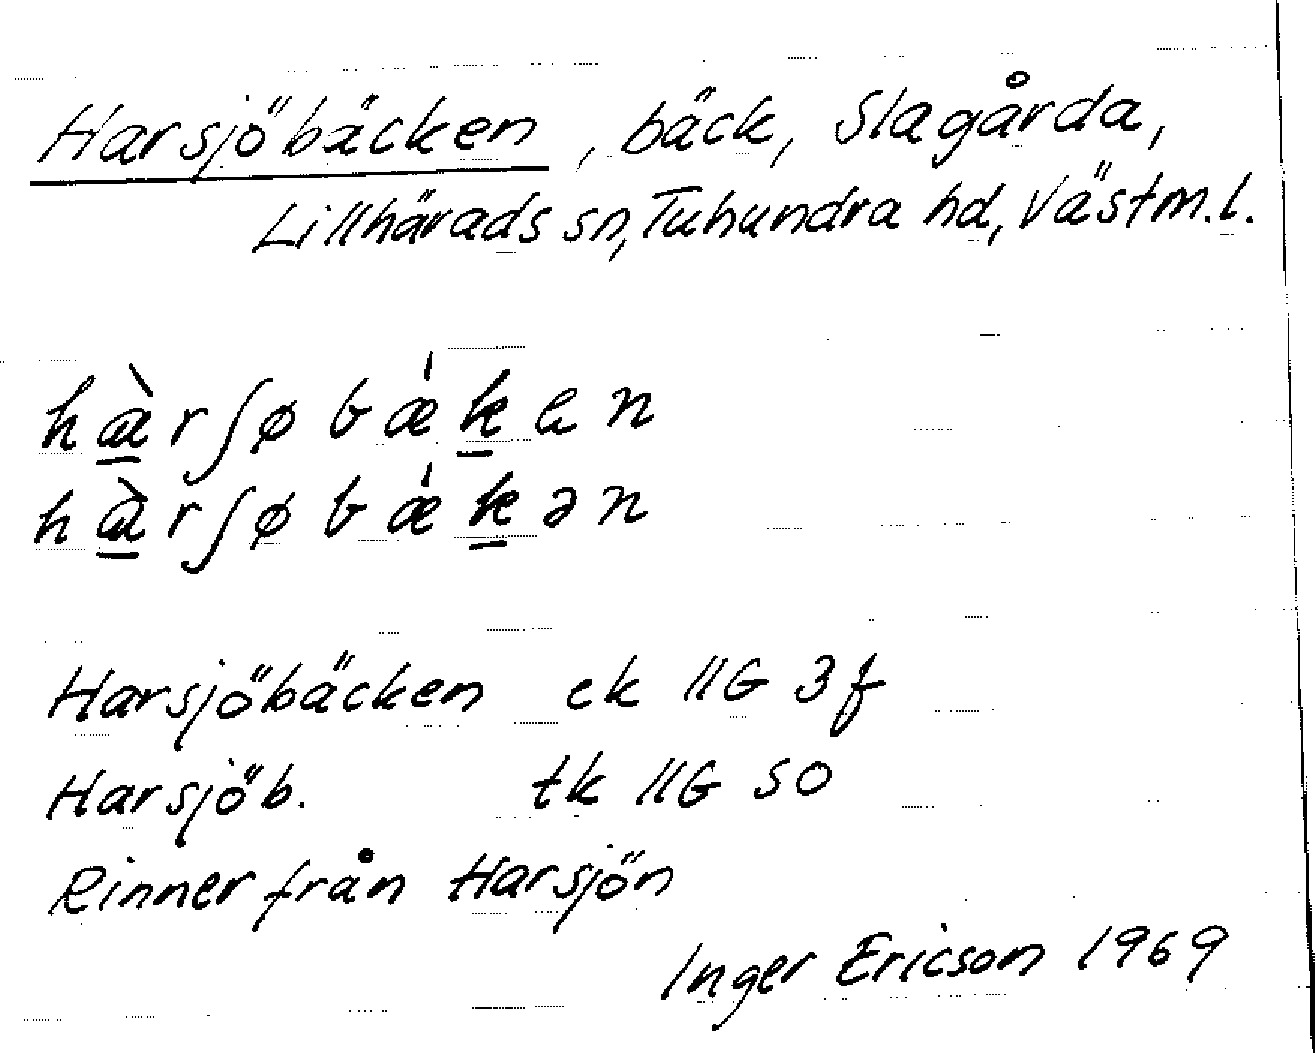 Harsjöbäcken, bäck, Slagårda,
Lillhärads sn, Tuhundra hd, Västm.l.
hà̱rʃøbǽḵen
hà̱rʃøbǽḵən
Harsjöbäcken ek 11G 3f
Harsjöb. tk 11G SO
Rinner från Harsjön
Inger Ericson 1969